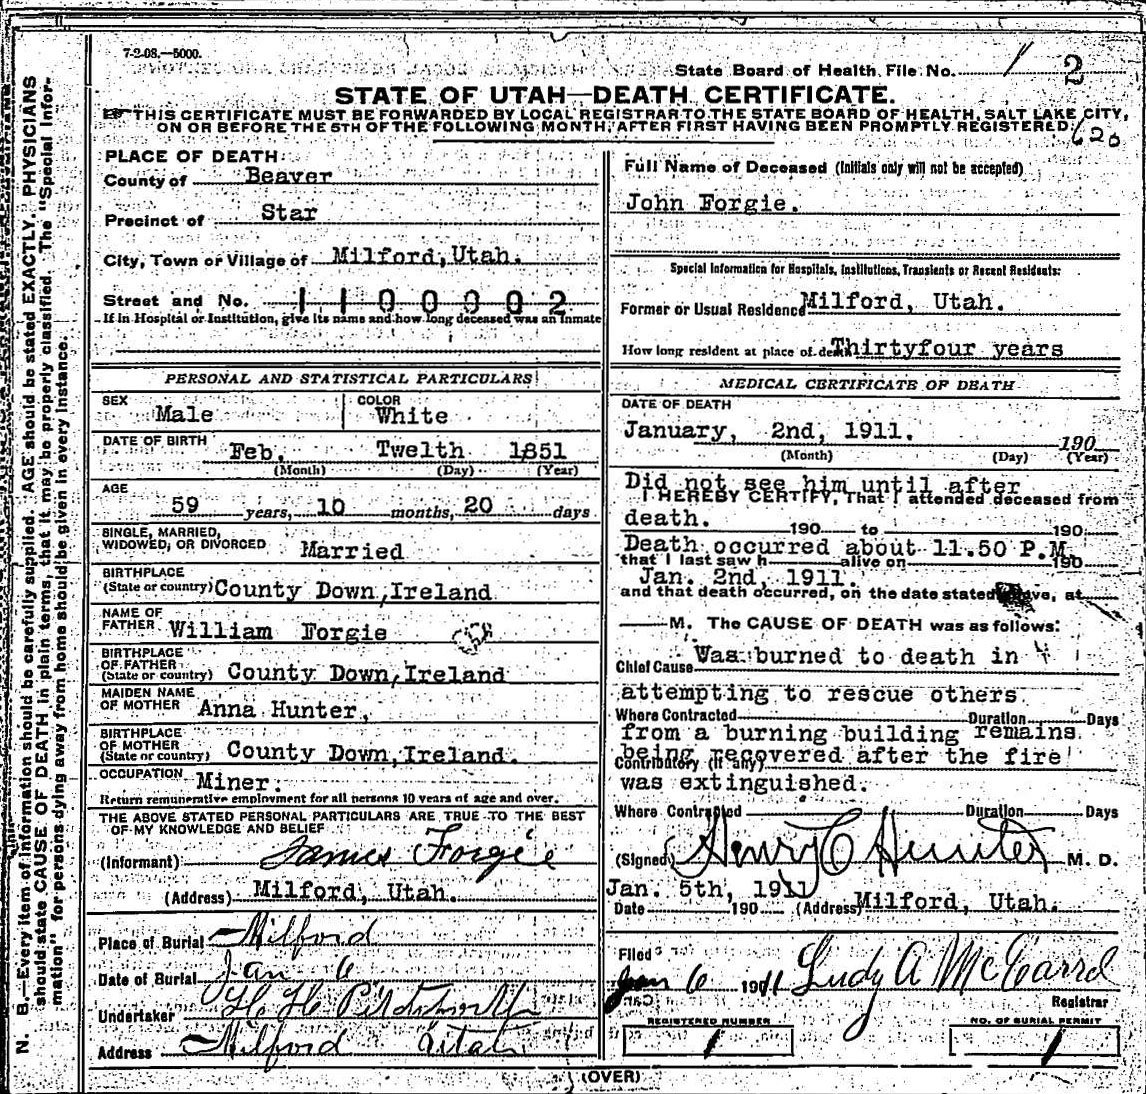 7-2-08.—5000.
State Board of Health File No. 2
STATE OF UTAH—DEATH CERTIFICATE.
THIS CERTIFICATE MUST BE FORWARDED BY LOCAL REGISTRAR TO THE STATE BOARD OF HEALTH, SALT LAKE CITY,
ON OR BEFORE THE 5TH OF THE FOLLOWING MONTH, AFTER FIRST HAVING BEEN PROMPTLY REGISTERED.
620
PLACE OF DEATH:
County of Beaver
Precinct of Star
City, Town or Village of Milford, Utah.
Street and No. 1100002
If in Hospital or Institution, give its name and how long deceased was an Inmate
Full Name of Deceased (Initials only will not be accepted)
John Forgie.
Special Information for Hospitals, Institutions, Transients or Recent Residents:
Former or Usual Residence Milford, Utah.
How long resident at place of death Thirtyfour years
PERSONAL AND STATISTICAL PARTICULARS
SEX Male COLOR White
DATE OF BIRTH Feb. Twelth 1851
(Month) (Day) (Year)
AGE
59 years, 10 months, 20 days
SINGLE, MARRIED,
WIDOWED, OR DIVORCED Married
BIRTHPLACE
(State or country) County Down, Ireland
NAME OF
FATHER William Forgie
BIRTHPLACE
OF FATHER
(State or country) County Down, Ireland
MAIDEN NAME
OF MOTHER Anna Hunter,
BIRTHPLACE
OF MOTHER
(State or country) County Down, Ireland.
OCCUPATION Miner.
Return remunerative employment for all persons 10 years of age and over.
THE ABOVE STATED PERSONAL PARTICULARS ARE TRUE TO THE BEST
OF MY KNOWLEDGE AND BELIEF
(Informant) James Forgie
(Address) Milford, Utah.
Place of Burial Milford
Date of Burial Jan 6
Undertaker H. H.
Address Milford Utah
MEDICAL CERTIFICATE OF DEATH
DATE OF DEATH
January, 2nd, 1911. 190
(Month) (Day) (Year)
Did not see him until after
I HEREBY CERTIFY, That I attended deceased from
death. 190 to 190
Death occurred about 11.50 P.M.
that I last saw h alive on 190
Jan. 2nd, 1911.
and that death occurred, on the date stated above, at
M. The CAUSE OF DEATH was as follows:
Chief Cause Was burned to death in
attempting to rescue others
Where Contracted Duration Days
from a burning building remains
being recovered after the fire
Contributory (if any)
was extinguished.
Where Contracted Duration Days
(Signed) Henry C Hunter M. D.
Jan. 5th, 1911
Date 190 (Address) Milford, Utah.
Filed
Jan 6 1911 Ludy A McGarrel
Registrar
REGISTERED NUMBER
1
NO. OF BURIAL PERMIT
1
(OVER)
N. B.—Every item of information should be carefully supplied. AGE should be stated EXACTLY. PHYSICIANS
should state CAUSE OF DEATH in plain terms, that it may be properly classified. The "Special Infor-
mation" for persons dying away from home should be given in every instance.